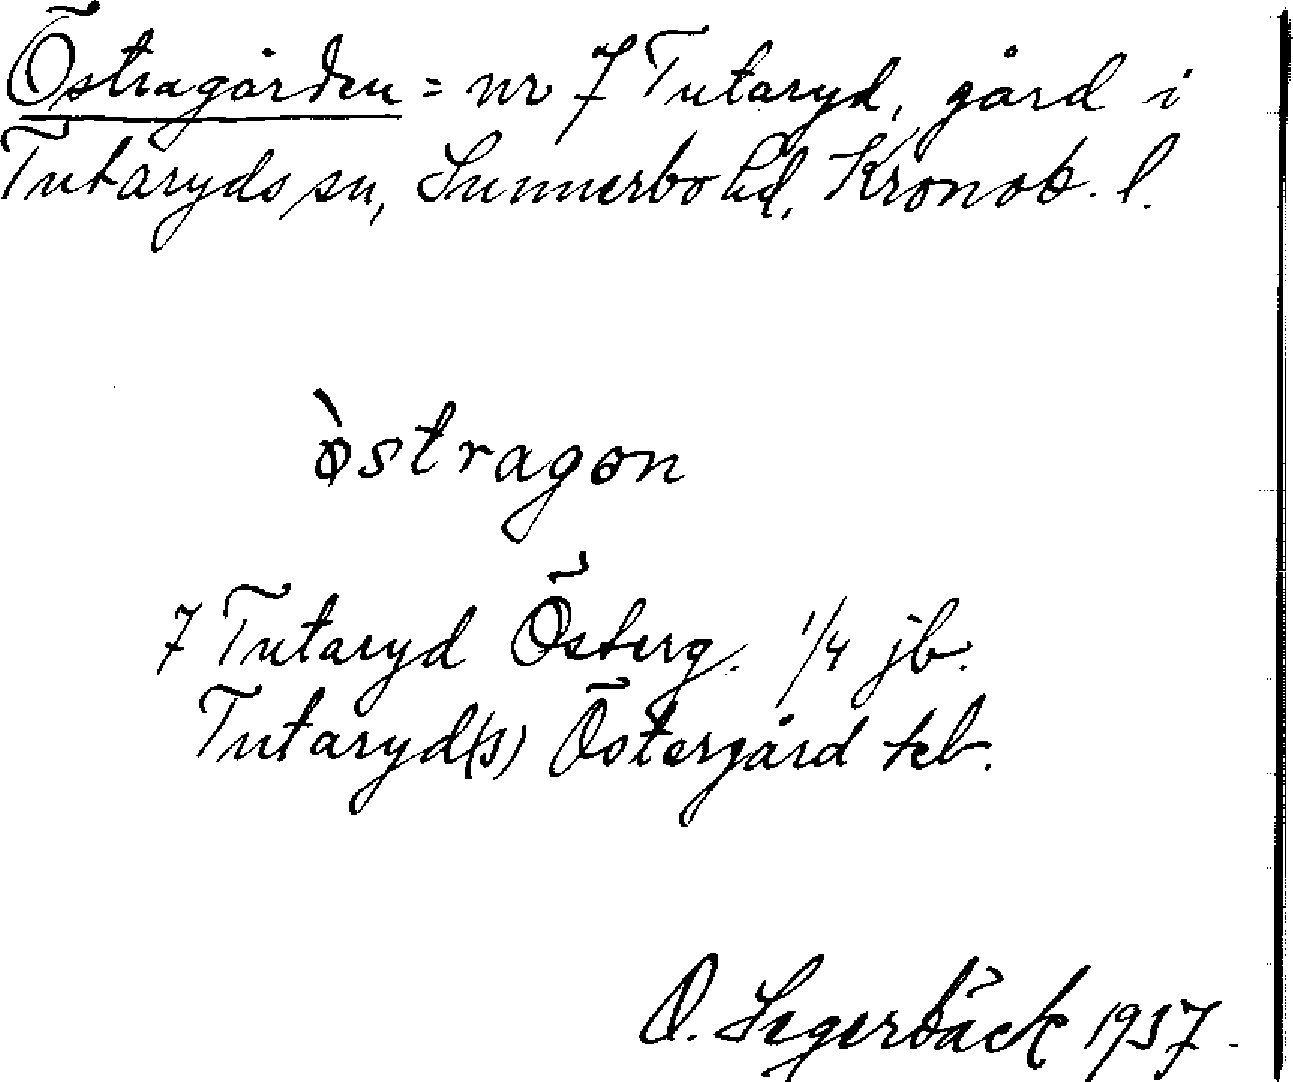 Östragården = nr 7 Tutaryd, gård i
Tutaryds sn, Sunnerbo hd, Kronob. l.
ø̀stragon
7 Tutaryd Österg. 1/4 jb.
Tutaryd(s) Östergård teb.
O. Segerbäck 1937.